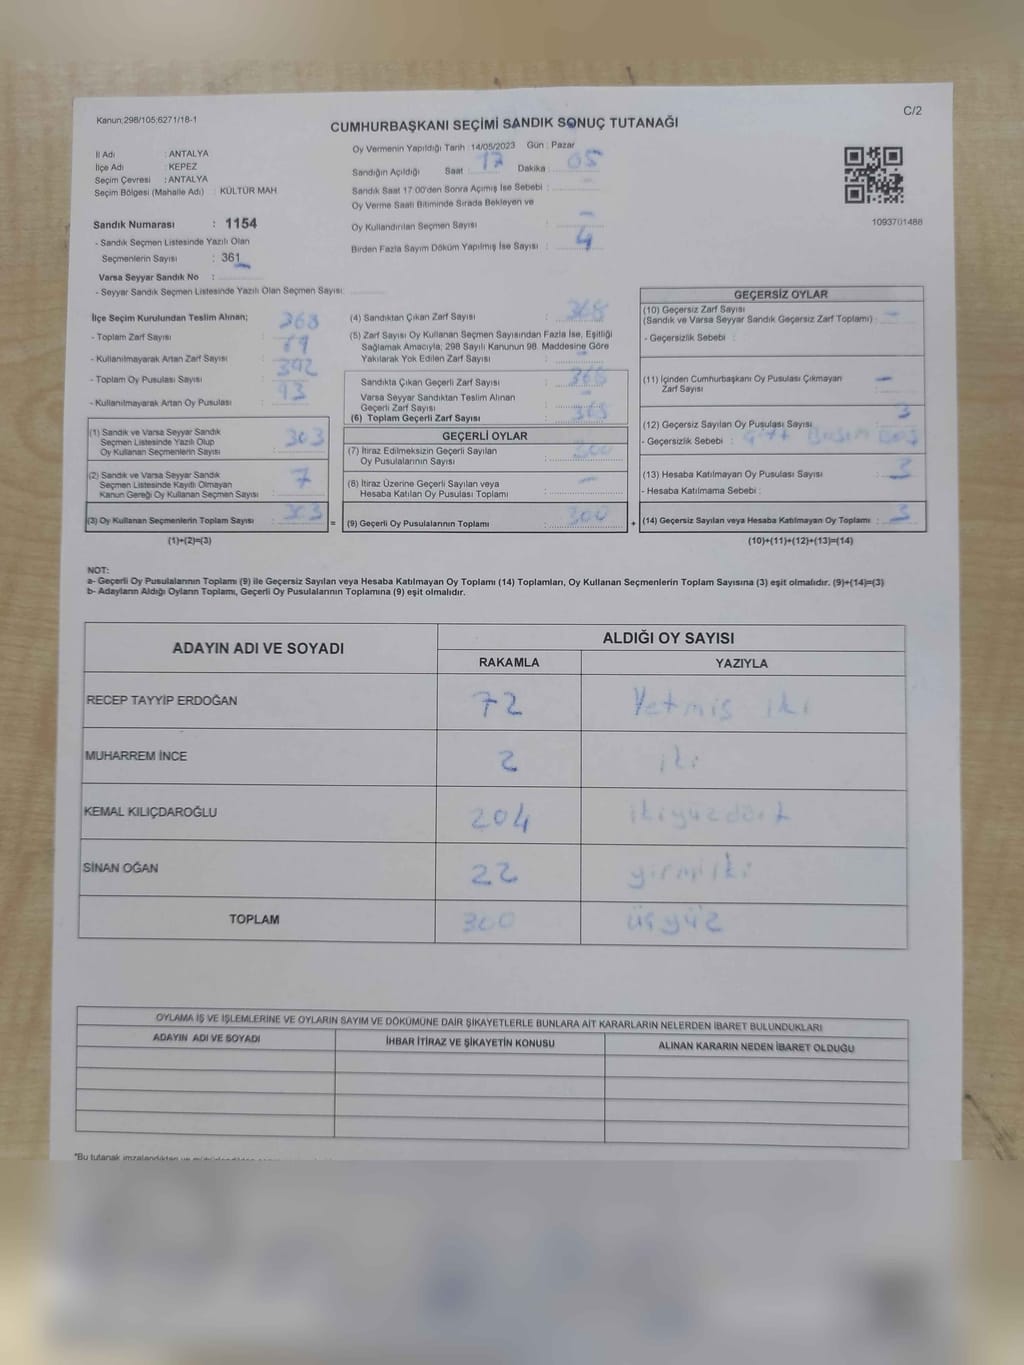 Kanun:298/105;6271/18-1
C/2
CUMHURBAŞKANI SEÇİMİ SANDIK SONUÇ TUTANAĞI
İl Adı : ANTALYA
İlçe Adı : KEPEZ
Seçim Çevresi : ANTALYA
Seçim Bölgesi (Mahalle Adı) : KÜLTÜR MAH
Oy Vermenin Yapıldığı Tarih : 14/05/2023 Gün : Pazar
Sandığın Açıldığı Saat : 17 Dakika : 05
Sandık Saat 17:00'den Sonra Açımış İse Sebebi : -
Oy Verme Saati Bitiminde Sırada Bekleyen ve
Oy Kullandırılan Seçmen Sayısı : -
Birden Fazla Sayım Döküm Yapılmış İse Sayısı : 4
1093701488
Sandık Numarası : 1154
- Sandık Seçmen Listesinde Yazılı Olan
Seçmenlerin Sayısı : 361
Varsa Seyyar Sandık No :
- Seyyar Sandık Seçmen Listesinde Yazılı Olan Seçmen Sayısı:
İlçe Seçim Kurulundan Teslim Alınan;
- Toplam Zarf Sayısı : 368
- Kullanılmayarak Artan Zarf Sayısı :
- Toplam Oy Pusulası Sayısı : 392
- Kullanılmayarak Artan Oy Pusulası : 93
(1) Sandık ve Varsa Seyyar Sandık
Seçmen Listesinde Yazılı Olup
Oy Kullanan Seçmenlerin Sayısı : 303
(2) Sandık ve Varsa Seyyar Sandık
Seçmen Listesinde Kayıtlı Olmayan
Kanun Gereği Oy Kullanan Seçmen Sayısı : 7
(3) Oy Kullanan Seçmenlerin Toplam Sayısı : 303 =
(1)+(2)=(3)
(4) Sandıktan Çıkan Zarf Sayısı :
(5) Zarf Sayısı Oy Kullanan Seçmen Sayısından Fazla İse, Eşitliği
Sağlamak Amacıyla; 298 Sayılı Kanunun 98. Maddesine Göre
Yakılarak Yok Edilen Zarf Sayısı : -
Sandıkta Çıkan Geçerli Zarf Sayısı :
Varsa Seyyar Sandıktan Teslim Alınan
Geçerli Zarf Sayısı : -
(6) Toplam Geçerli Zarf Sayısı :
GEÇERLİ OYLAR
(7) İtiraz Edilmeksizin Geçerli Sayılan
Oy Pusulalarının Sayısı : 300
(8) İtiraz Üzerine Geçerli Sayılan veya
Hesaba Katılan Oy Pusulası Toplamı : -
(9) Geçerli Oy Pusulalarının Toplamı : 300 +
GEÇERSİZ OYLAR
(10) Geçersiz Zarf Sayısı
(Sandık ve Varsa Seyyar Sandık Geçersiz Zarf Toplamı) : -
- Geçersizlik Sebebi :
(11) İçinden Cumhurbaşkanı Oy Pusulası Çıkmayan
Zarf Sayısı : -
(12) Geçersiz Sayılan Oy Pusulası Sayısı : 3
- Geçersizlik Sebebi :
(13) Hesaba Katılmayan Oy Pusulası Sayısı : 3
- Hesaba Katılmama Sebebi :
(14) Geçersiz Sayılan veya Hesaba Katılmayan Oy Toplamı : 3
(10)+(11)+(12)+(13)=(14)
NOT:
a- Geçerli Oy Pusulalarının Toplamı (9) ile Geçersiz Sayılan veya Hesaba Katılmayan Oy Toplamı (14) Toplamları, Oy Kullanan Seçmenlerin Toplam Sayısına (3) eşit olmalıdır. (9)+(14)=(3)
b- Adayların Aldığı Oyların Toplamı, Geçerli Oy Pusulalarının Toplamına (9) eşit olmalıdır.
ADAYIN ADI VE SOYADI
ALDIĞI OY SAYISI
RAKAMLA YAZIYLA
RECEP TAYYİP ERDOĞAN 72 Yetmiş iki
MUHARREM İNCE 2 iki
KEMAL KILIÇDAROĞLU 204 ikiyüzdört
SİNAN OĞAN 22 yirmiiki
TOPLAM 300 üçyüz
OYLAMA İŞ VE İŞLEMLERİNE VE OYLARIN SAYIM VE DÖKÜMÜNE DAİR ŞİKAYETLERLE BUNLARA AİT KARARLARIN NELERDEN İBARET BULUNDUKLARI
ADAYIN ADI VE SOYADI İHBAR İTİRAZ VE ŞİKAYETİN KONUSU ALINAN KARARIN NEDEN İBARET OLDUĞU
*Bu tutanak imzalandıktan ve